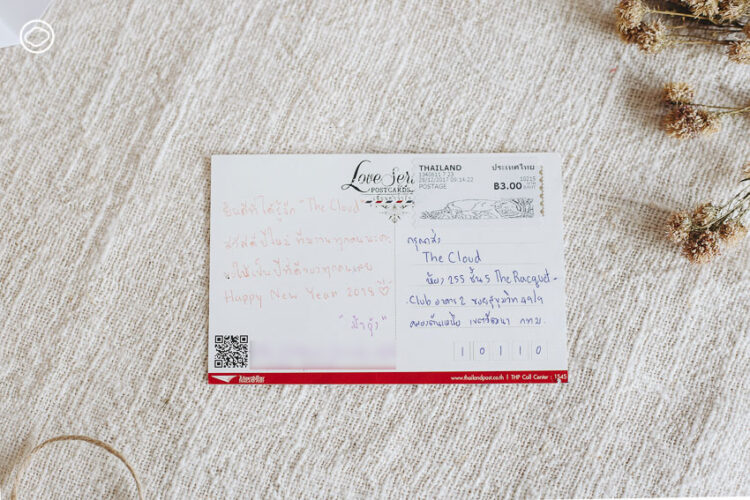 Love Ser
POSTCARDS
THAILAND ประเทศไทย
28/12/2017 09:14:22
POSTAGE ฿3.00
10215
ยินดีที่ได้รู้จัก "The Cloud"
สวัสดีปีใหม่ ทีมงานทุกคนนะคะ
ขอให้เป็นปีที่ดีของทุกคนเลย
Happy New Year 2018
กรุณาส่ง
The Cloud
ห้อง 255 ชั้น 5 The Racquet
Club อาคาร 2 ซอยสุขุมวิท 49/9
คลองตันเหนือ เขตวัฒนา กทม.
10110
www.thailandpost.co.th | THP Call Center : 1545